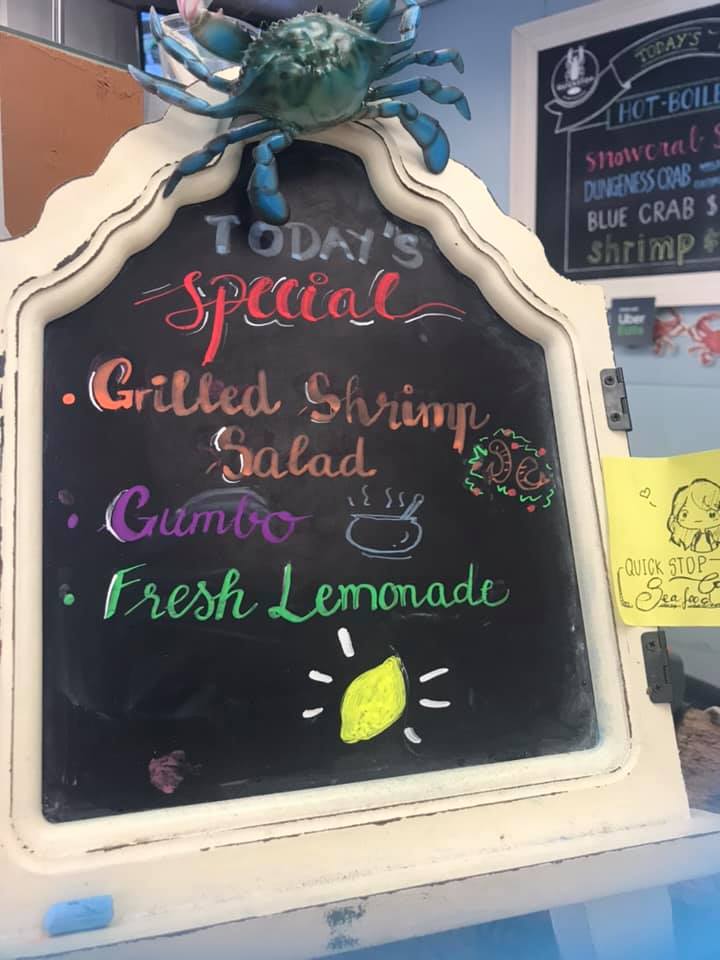 TODAY'S
Special
• Grilled Shrimp
Salad
• Gumbo
• Fresh Lemonade
TODAY'S
HOT-BOILE
snowcrab
DUNGENESS CRAB
BLUE CRAB $
shrimp $
Uber
Eats
QUICK STOP
Seafood